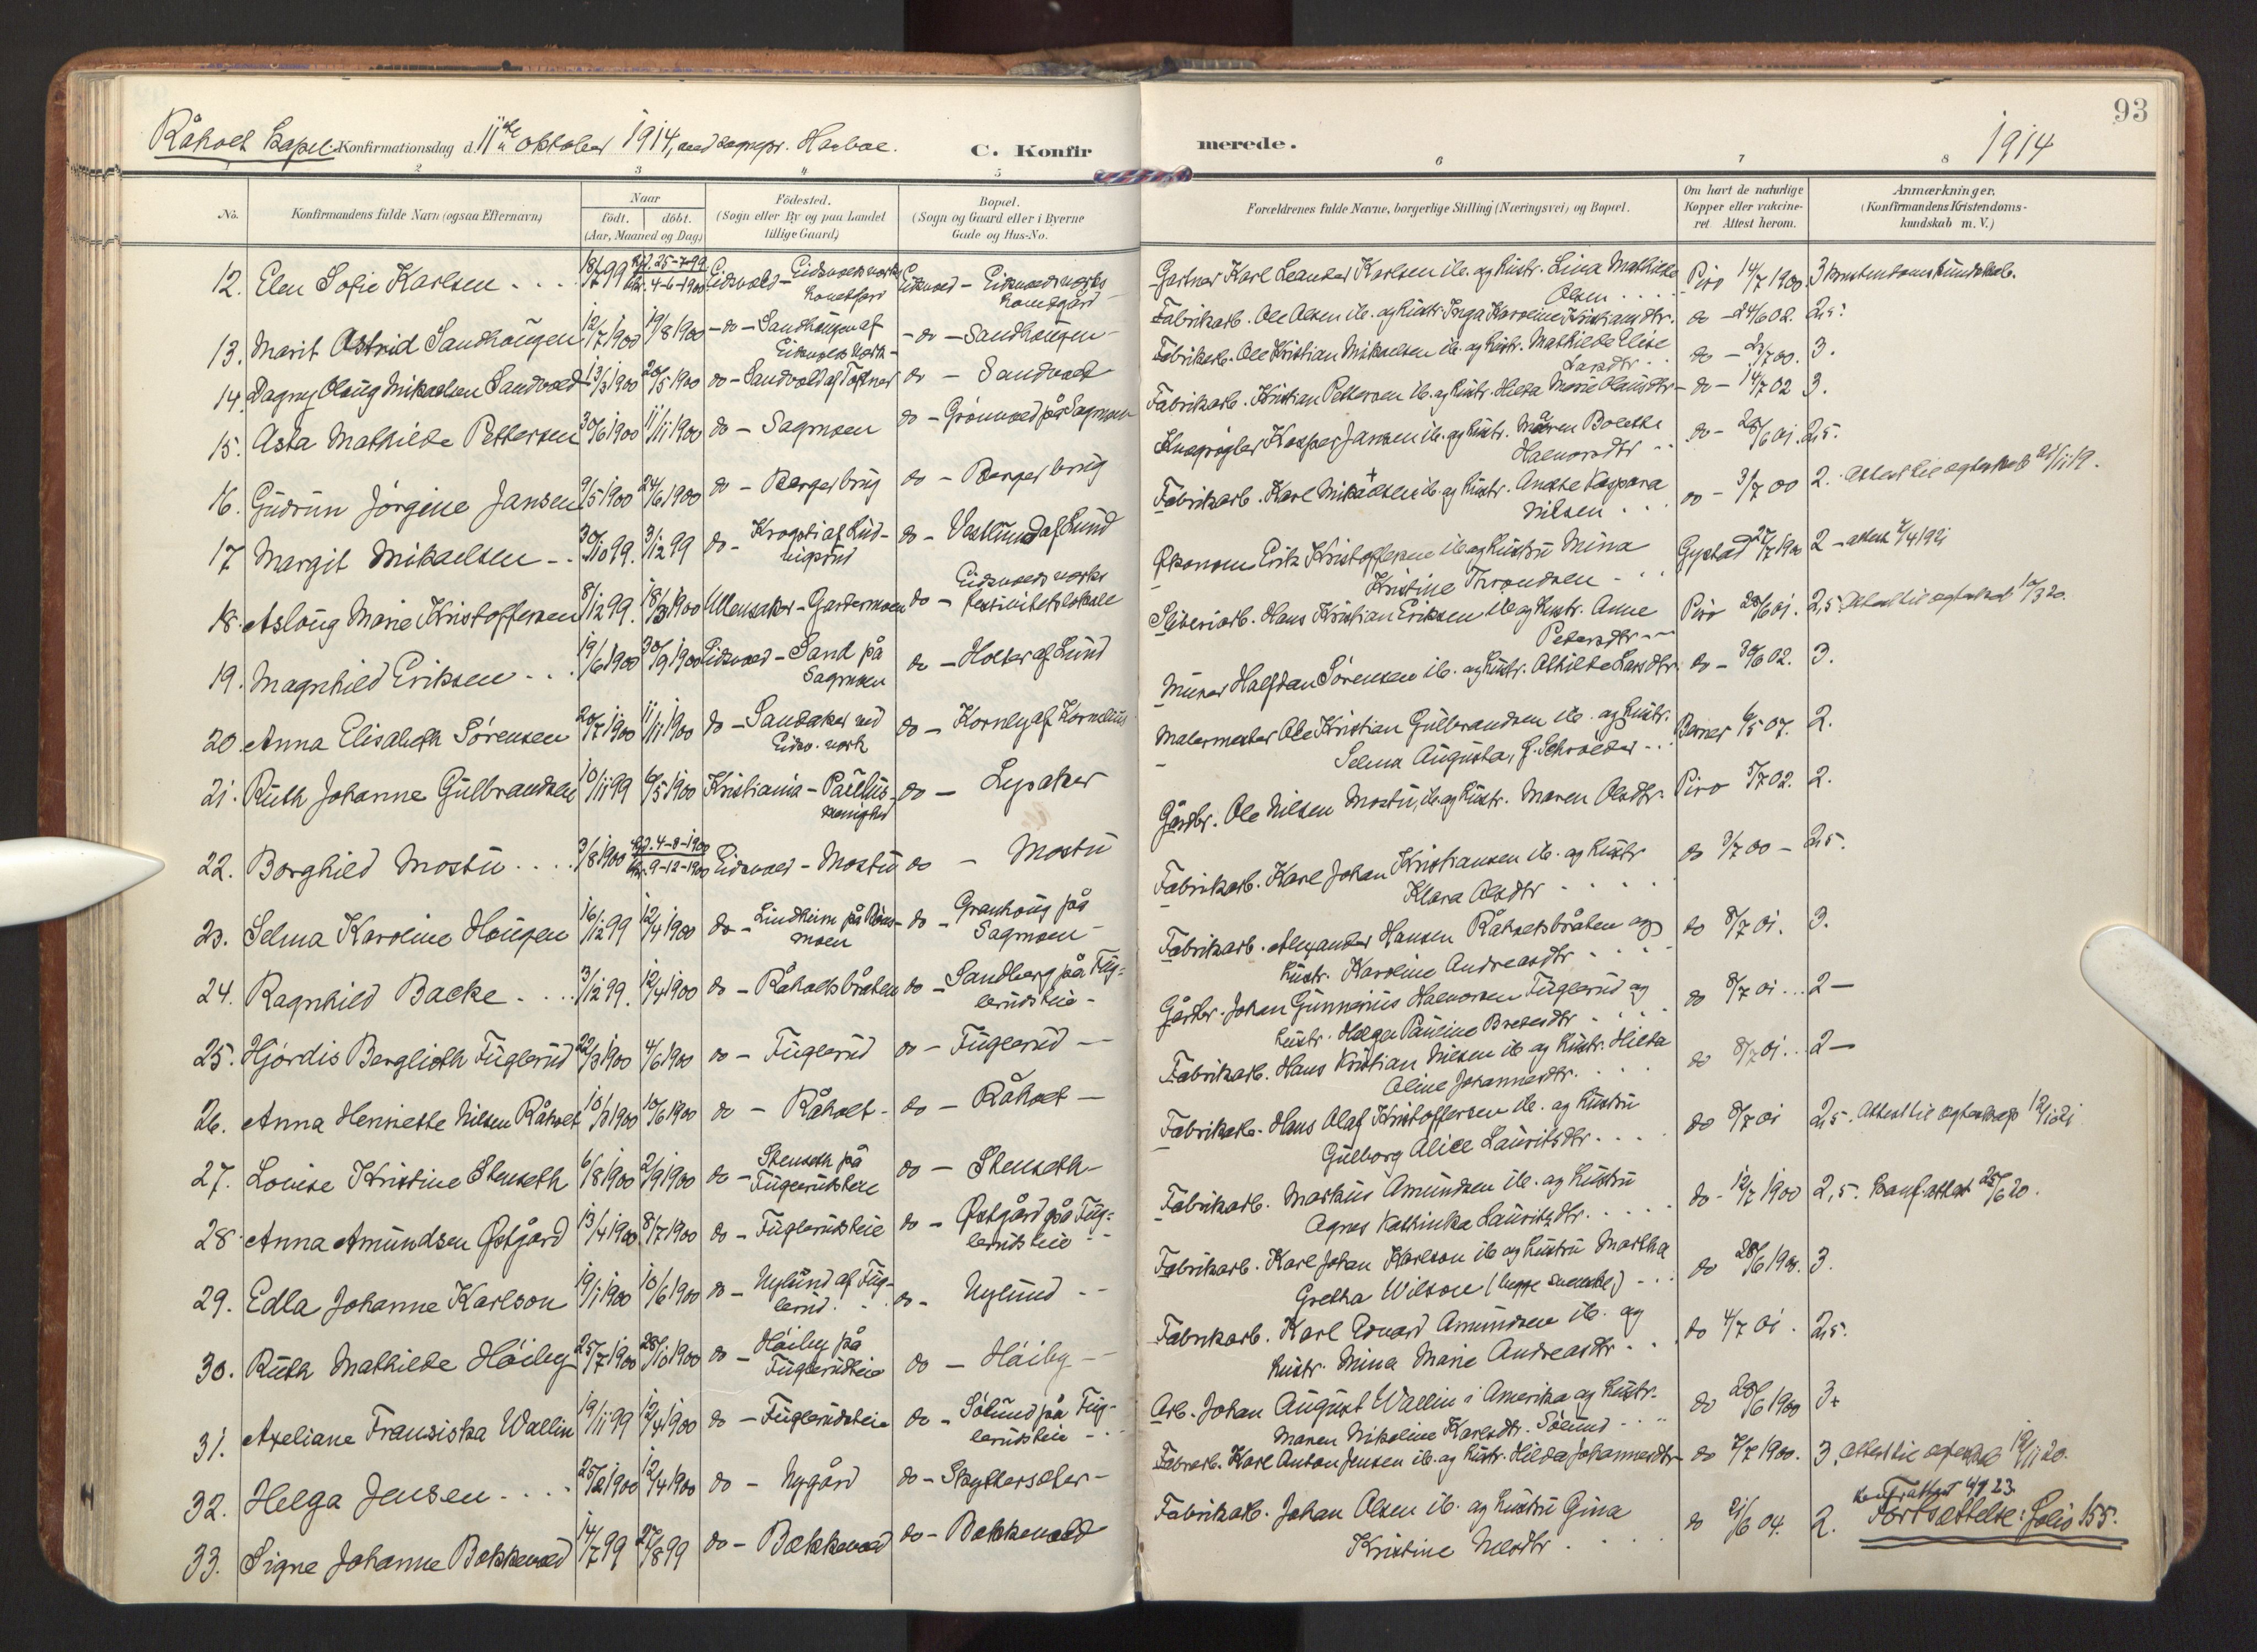 93
Råholt Kapel. Konfirmationsdag d. 11te oktober 1914, ved sognepr. Harboe.
C. Konfirmerede.
1914
1 2 3 4 5 6 7 8
No.
Konfirmandens fulde Navn (ogsaa Efternavn)
Naar
født. døbt.
(Aar, Maaned og Dag)
Födested.
(Sogn eller By og paa Landet
tillige Gaard)
Bopæl.
(Sogn og Gaard eller i Byerne
Gade og Hus-No.
Forældrenes fulde Navne, borgerlige Stilling (Næringsvei) og Bopæl.
Om havt de naturlige
Kopper eller vaccine-
ret Attest herom.
Anmærkninger,
(Konfirmandens Kristendoms-
kundskab m. V.)
12. Elen Sofie Karlsen . . . 18/7 99 25-7-99 4-6-1900 Eidsvold - Eidsvolds verks Eidsvold - Eidsvolds verks Gartner Karl Leander Karlsen ib. og hustr. Lina Mathilde Olsen . . . Piro 14/7 1900 3 kristendomskundskab.
13. Marit Astrid Sandhaugen 12/7 1900 19/8 1900 - do - Sandhaugen af Eidsvolds verk - - do - Sandhaugen - Fabrikarb. Ole Olsen ib. og hustr. Inga Karoline Kristiansdtr. do - 24/6 02. 2,5.
14. Dagny Olaug Mikaelsen Sandvold 13/3 1900 20/5 1900 do - Sandvold af Tofner do - Sandvold Fabrikarb. Ole Kristian Mikaelsen ib. og hustr. Mathilde Elise Larsdtr . . do - /7 00. 3.
15. Asta Mathilde Pettersen 30/6 1900 11/11 1900 do - Sagmoen do - Grönvold på Sagmoen Fabrikarb. Kristian Pettersen ib. og hustr. Hilda Marie Olausdtr - do - 14/7 02 3.
16. Gudrun Jørgine Jansen 9/5 1900 24/6 1900 do - Berger brug do - Berger brug Kasper Jansen ib. og hustr. Maren Bolette Halvorsdtr . . do - 28/6 01. 2,5.
17 Margit Mikaelsen . . 30/10 99. 3/12 99 do - Krogsti af Ludvigsrud do - Vestlund af Lund Fabrikarb. Karl Mikaelsen ib. og hustr. Anette Kaspara Nilsen . . . do - 3/7 00 2. Attest til egteskab 21/11 19.
18. Aslaug Marie Kristoffersen 8/12 99. 18/3 1900 Ullensaker - Gardermoen do - Eidsvolds verks festivitetslokale Økonom Erik Kristoffersen ib. og hustru Mina Kristine Throndsen - . . Gystad 27/7 1900 2 - attest 7/4 1921
19. Magnhild Eriksen . . . 19/6 1900 30/9 1900 Eidsvold - Sand på Sagmoen do - Holter af Lund Sliperiarb. Hans Kristian Eriksen ib. og hustr. Anne Petersdtr - Piro 28/6 01. 2,5 Attest til egteskab 10/3 20.
20. Anna Elisabeth Sörensen 20/7 1900 11/11 1900 do - Sandaker ved Eidsv. verk do - Kornly af Kornelius Murer Halfdan Sörensen ib. og hustr. Athilde Larsdtr. do - 30/6 02. 3.
21. Ruth Johanne Gulbrandsen 10/11 99 6/5 1900 Kristiania - Paulus menighed do - Lysaker Malermester Ole Kristian Gulbrandsen ib. og hustr. Selma Augusta, f. Schroeder . . . Berner 6/5 07. 2.
22. Borghild Mostu . . . . 3/8 1900 4-8-1900 9-12-1900 Eidsvold - Mostu do - Mostu Gårdbr. Ole Nilsen Mostu, ib. og hustr. Maren Olsdtr. Piro 5/7 02. 2.
23. Selma Karoline Haugen 16/12 99 12/4 1900 do - Lindheim på Råholtmoen do - Granhaug på Sagmoen - Fabrikarb. Karl Johan Kristiansen ib. og hustr Klara Olsdtr . . . . do 3/7 00 - 2,5.
24. Ragnhild Backe . . . . 3/12 99. 12/4 1900 do - Råholtsbråten do - Sandberg på Fuglerudseie - Fabrikarb. Alexander Hansen Råholtsbråten og hustr. Karoline Andreasdtr . . . . do 8/7 01. 3.
25. Hjördis Berglioth Fuglerud 22/3 1900 4/6 1900 do - Fuglerud do - Fuglerud - Gårdbr. Johan Gunnerius Halvorsen Fuglerud og hustr. Helga Pauline Bredesdtr . . . . do 8/7 01 . . . 2 -
26. Anna Henriette Nilsen Råholt 10/1 1900 10/6 1900 do - Råholt - do - Råholt - Fabrikarb. Hans Kristian Nilsen ib og hustr. Hilda Oline Johannesdtr. . . . do 8/7 01 . . . 2 -
27. Louise Kristine Stenseth 6/8 1900 2/9 1900 do - Stenseth på Fuglerudseie do - Stenseth - Fabrikarb. Hans Olaf Kristoffersen ib. og hustru Gulborg Alice Lauritsdtr. . . . do 8/7 01 2,5. Attest til egteskap 12/1 21
28. Anna Amundsen Østgård 13/4 1900. 8/7 1900 do - Fuglerudseie do - Østgård på Fuglerudseie - - Fabrikarb. Markus Amundsen ib. og hustru Agnes Kathinka Lauritsdtr. . . . . do - 12/7 1900 2,5. Konf. attest 25/6 20.
29. Edla Johanne Karlson 19/1 1900 10/6 1900 do - Nylund af Fuglerud. . . do - Nylund - - Fabrikarb. Karl Johan Karlson ib og hustru Martha Gretha Wilson (begge svenske) - . . do 28/6 1900. 3.
30. Ruth Mathilde Höiby 25/7 1900 28/10 1900 do - Höiby på Fuglerudseie do - Höiby - - Fabrikarb. Karl Edvard Amundsen ib. og hustr. Mina Marie Andreasdtr. . . do 4/7 01 . 2,5.
31. Axeliane Fransiska Wallin 19/11 99 12/4 1900 do - Fuglerudseie do - Sölund på Fuglerudseie - . . Arb. Johan August Wallin i Amerika og hustr. Maren Nikoline Karlsdtr. Sölund . . . do 28/6 1900 3+
32. Helga Jensen . . . . 25/2 1900 12/4 1900 do - Nygård do - Skyttersæter - Fabrarb. Karl Anton Jensen ib. og hustr. Hilda Johannesdtr - do 7/7 1900. 3. Attest til egteskab 12/11 20.
Konf attest 4/9 23.
33. Signe Johanne Bekkevold 14/7 99 27/8 99 do - Bækkevold do - Bekkevold Fabrikarb. Johan Olsen ib. og hustru Gina Kristine Nilsdtr . . . do 21/6 04. 2.
Fortsættelse: folio 155.